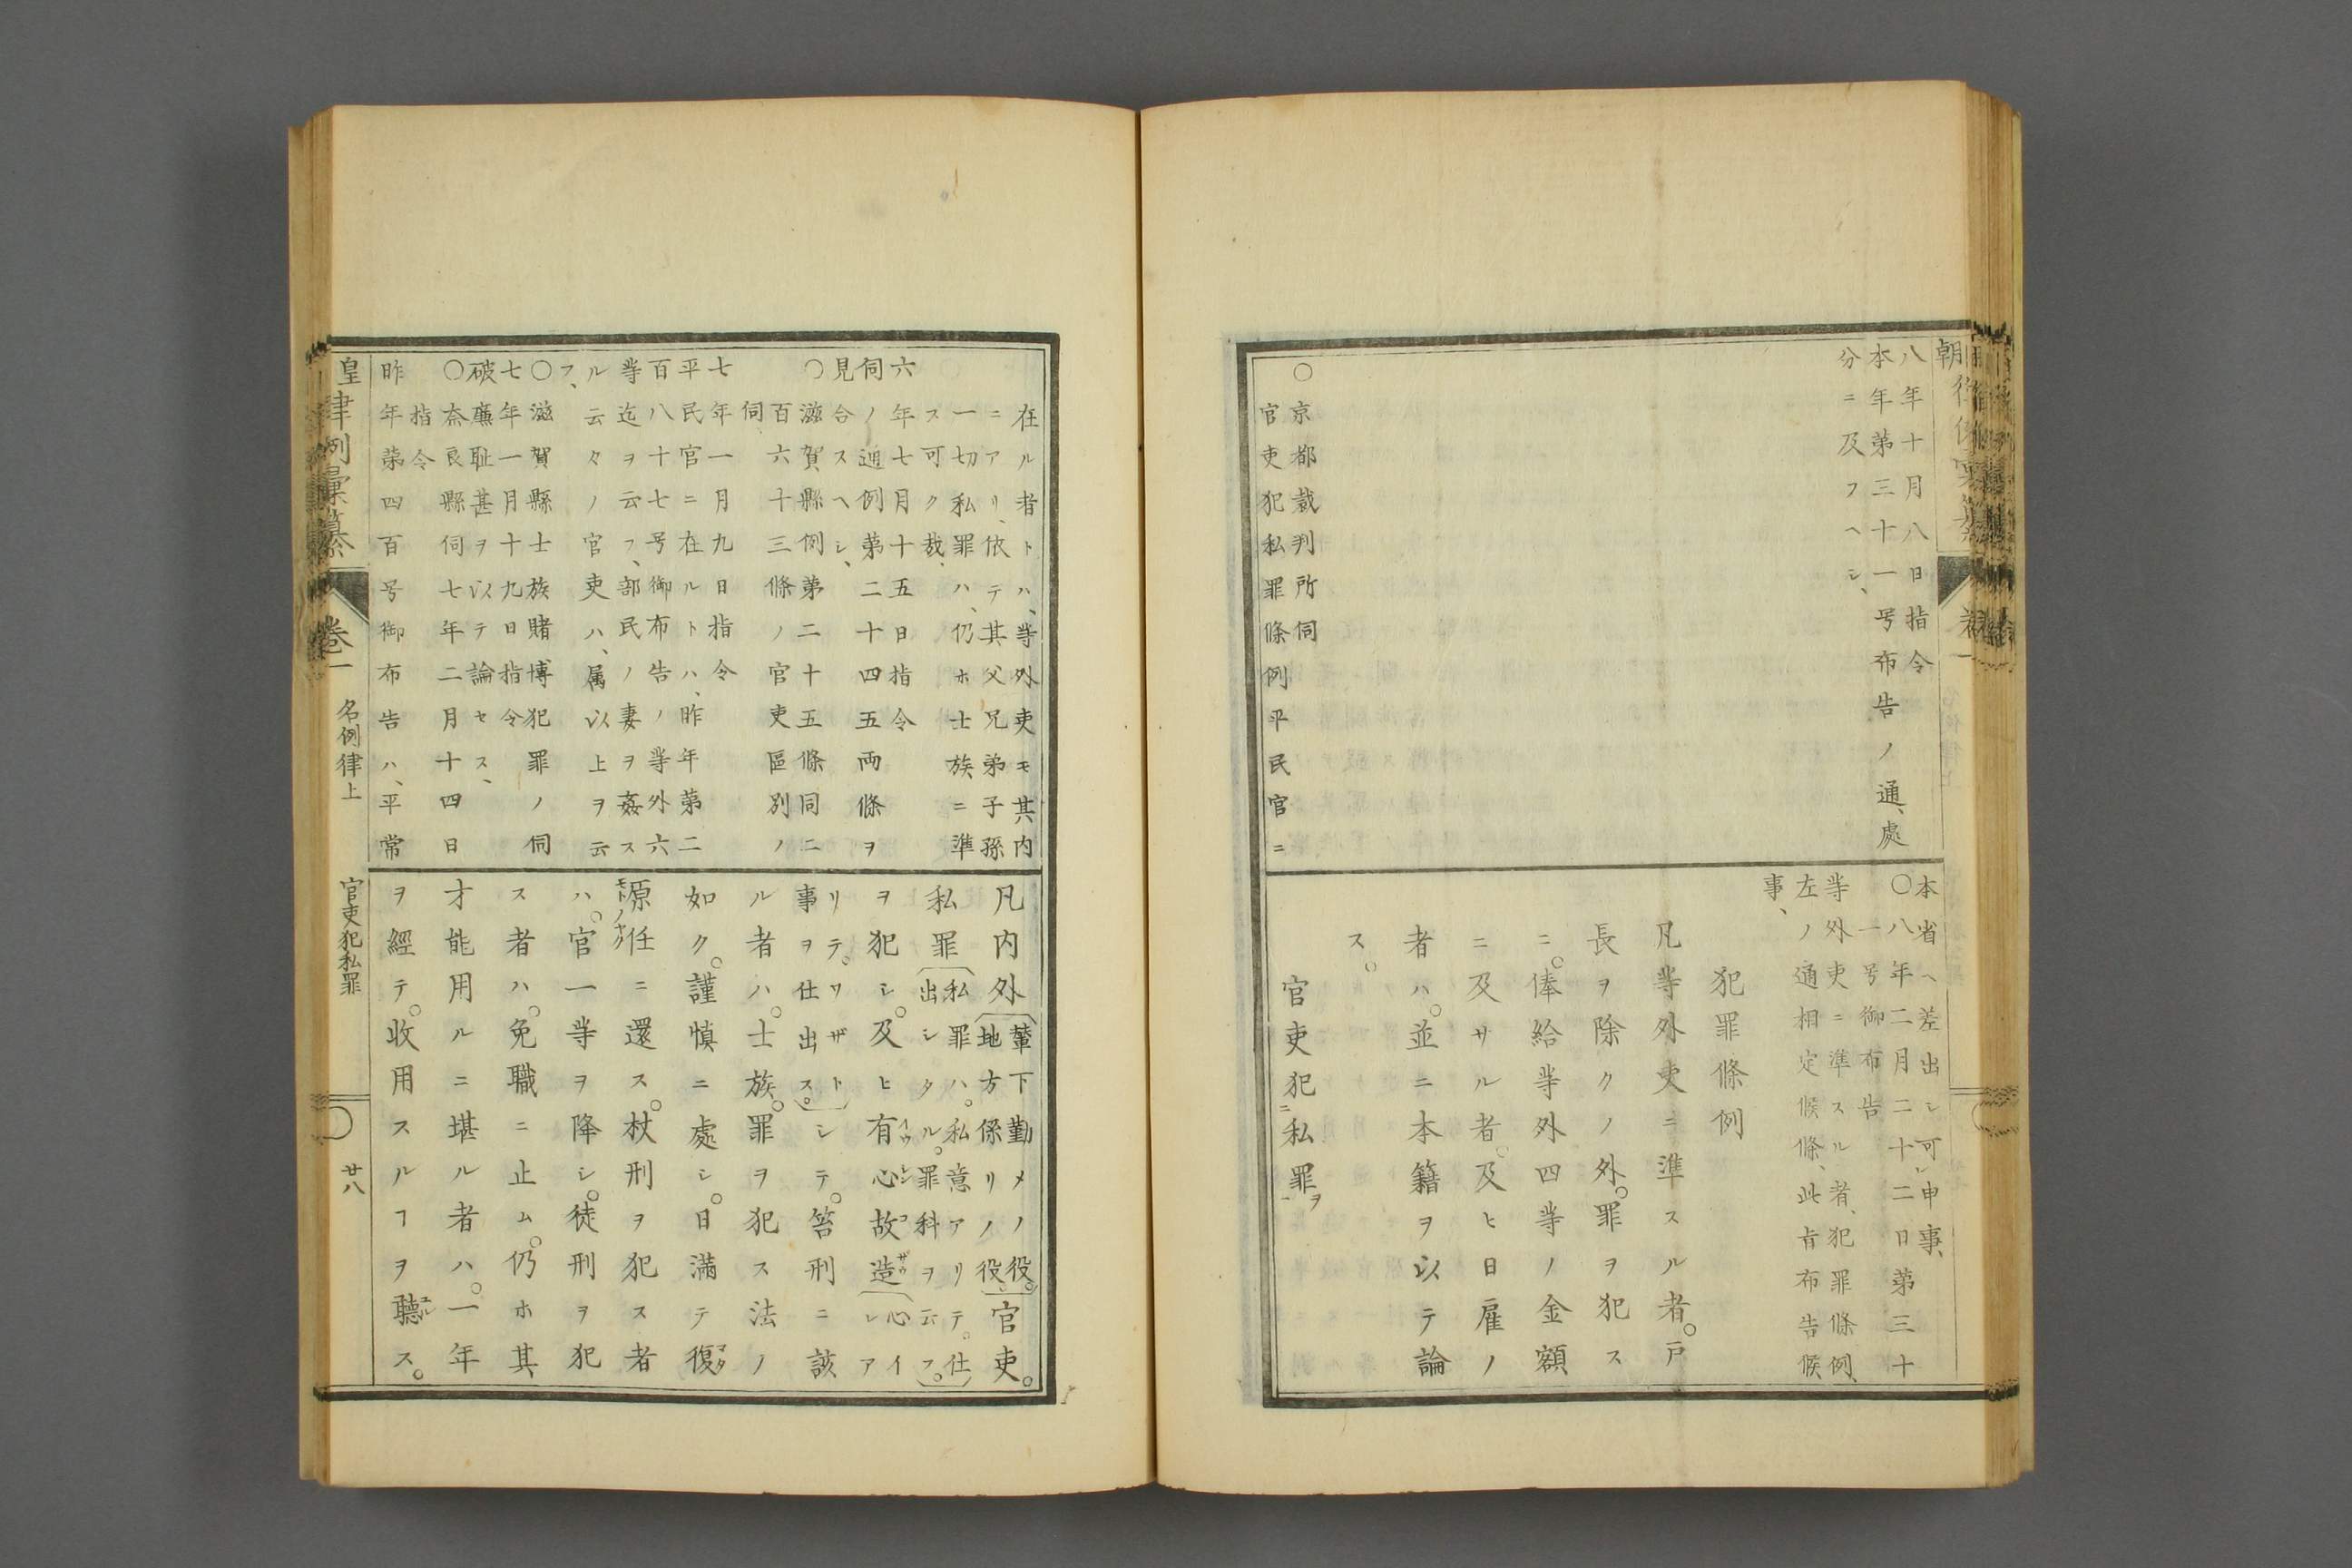 八年十月八日指令
本年第三十一号布告ノ通、處
分ニ及フヘシ、
○京都裁判所伺
官吏犯私罪條例平民官ニ
本省ヘ差出シ可シ申事、
○八年二月二十二日第三十
一号御布告
等外吏ニ準スル者、犯罪條例、
左ノ通相定候條、此旨布告候
事、
犯罪條例
凡等外吏ニ準スル者。戸
長ヲ除クノ外。罪ヲ犯ス
ニ。俸給等外四等ノ金額
ニ及サル者。及ヒ日雇ノ
者ハ。並ニ本籍ヲ以テ論
ス。
官吏犯ニ私罪ヲ一
在ル者トハ、等外吏モ其内
ニアリ、依テ其父兄弟子孫
一切私罪ハ、仍ホ士族ニ準
ス可ク哉、
六年七月十五日指令
伺ノ通例第二十四五両條ヲ
見合スヘシ、
○滋賀縣例第二十五條同二
百六十三條ノ官吏區別ノ
伺
七年一月九日指令
平民官ニ在ルトハ、昨年第二
百八十七号御布告ノ等外六
等迄ヲ云フ、部民ノ妻ヲ姦ス
ル云々ノ官吏ハ、属以上ヲ云
フ、
○滋賀縣士族賭博犯罪ノ伺
七年一月十九日指令
破廉耻甚ヲ以テ論セス、
○奈良縣伺七年二月十四日
指令
昨年第四百号御布告ハ、平常
凡内外(輦下勤メノ役。地方係リノ役。)官吏。
私罪(私罪ハ。私意アリテ。仕出シタル。罪科ヲ云フ。)
ヲ犯シ。及ヒ有心故造(心アイ
リテ。ワザト事ヲ仕出ス。)シテ。笞刑ニ該
ル者ハ。士族。罪ヲ犯ス法ノ
如ク。謹慎ニ處シ。日満テ復
原任ニ還ス。杖刑ヲ犯ス者
ハ。官一等ヲ降シ。徒刑ヲ犯
ス者ハ。免職ニ止ム。仍ホ其
才能用ルニ堪ル者ハ。一年
ヲ經テ。收用スルヿヲ聽ス。
皇律例彙纂 卷一 名例律上 官吏犯私罪 廿八